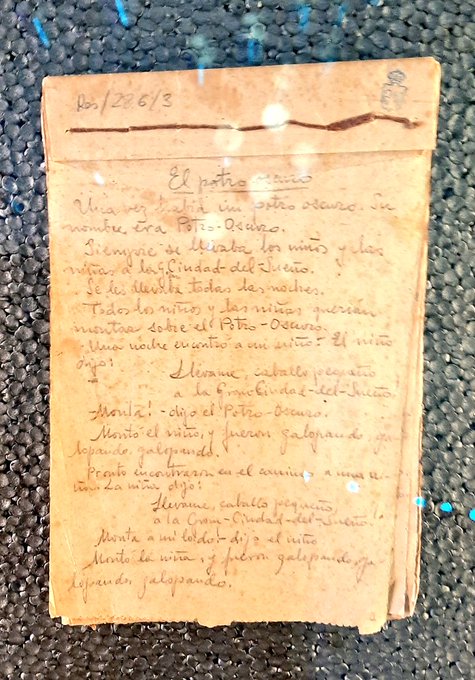 Res/286/3
El potro oscuro
Una vez había un potro oscuro. Su
nombre era Potro-Oscuro.
Siempre se llevaba los niños y las
niñas a la Gran Ciudad-del-Sueño.
Se los llevaba todas las noches.
Todos los niños y las niñas querían
montar sobre el Potro-Oscuro.
Una noche encontró a un niño. El niño
dijo:
Llévame, caballo pequeño,
a la Gran-Ciudad-del-Sueño.
-Monta! - dijo el Potro-Oscuro.
Montó el niño, y fueron galopando, ga-
lopando, galopando.
Pronto encontraron en el camino a una ni-
ña. La niña dijo:
Llévame, caballo pequeño,
a la Gran-Ciudad-del-Sueño!
Monta a mi lado! - dijo el niño
Montó la niña, y fueron galopando, ga-
lopando, galopando.